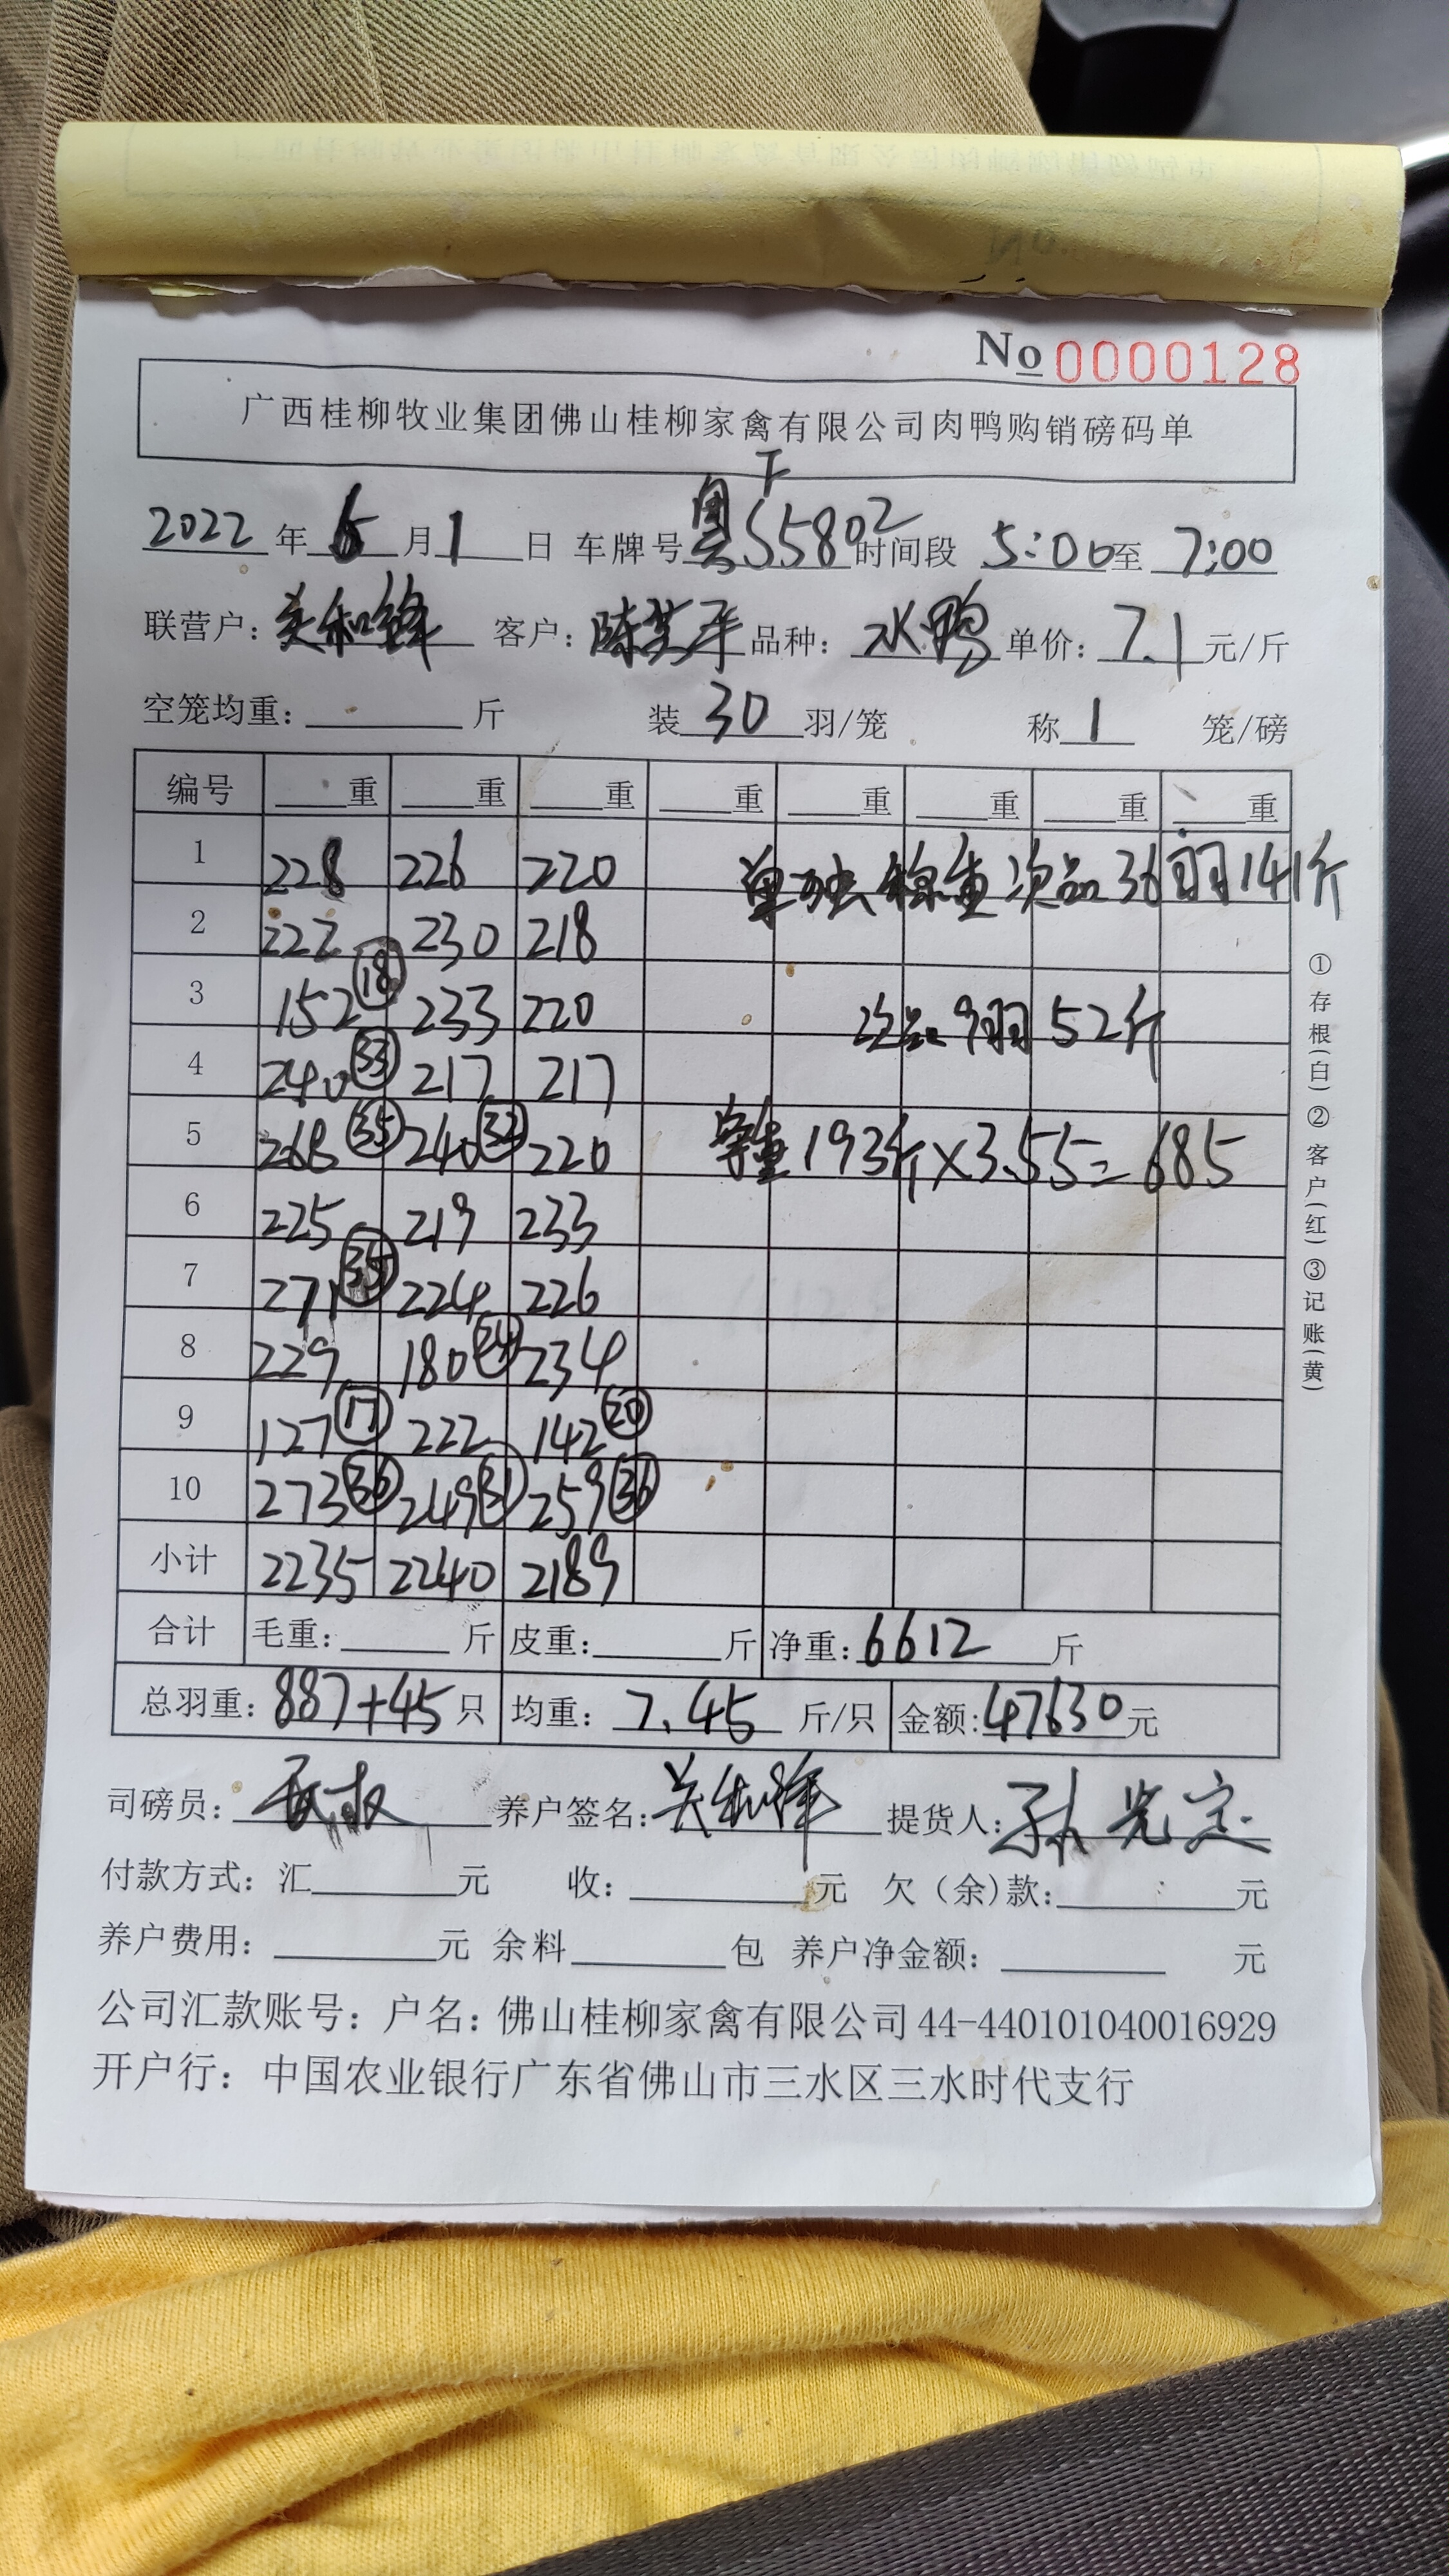 No 0000128
广西桂柳牧业集团佛山桂柳家禽有限公司肉鸭购销磅码单
2022年6月1日 车牌号粤FS5802时间段 5:00至 7:00
联营户：关和锋 客户：陈芝平 品种：水鸭 单价：7.1元/斤
空笼均重：斤 装30羽/笼 称1 笼/磅
编号 重 重 重 重 重 重 重 重
1 228 226 220 单独称重次品36羽141斤
2 222 230 218
3 152⑱ 233 220 次品9羽 52斤
4 240㉝ 217 217
5 268㉟ 240 220 193斤×3.55=685
6 225 219 233
7 271㉟ 224 226
8 229 180㉔ 234
9 127⑰ 222 142⑳
10 273㊱ 249㉛ 259㊱
小计 2235 2240 2189
合计 毛重：斤 皮重：斤 净重：6612斤
总羽重：887+45只 均重：7.45斤/只 金额：47630元
司磅员： 养户签名：关和锋 提货人：孙光定
付款方式：汇元 收：元 欠（余）款：元
养户费用：元 余料包 养户净金额：元
公司汇款账号：户名：佛山桂柳家禽有限公司44-440101040016929
开户行：中国农业银行广东省佛山市三水区三水时代支行
①存根(白)②客户(红)③记账(黄)